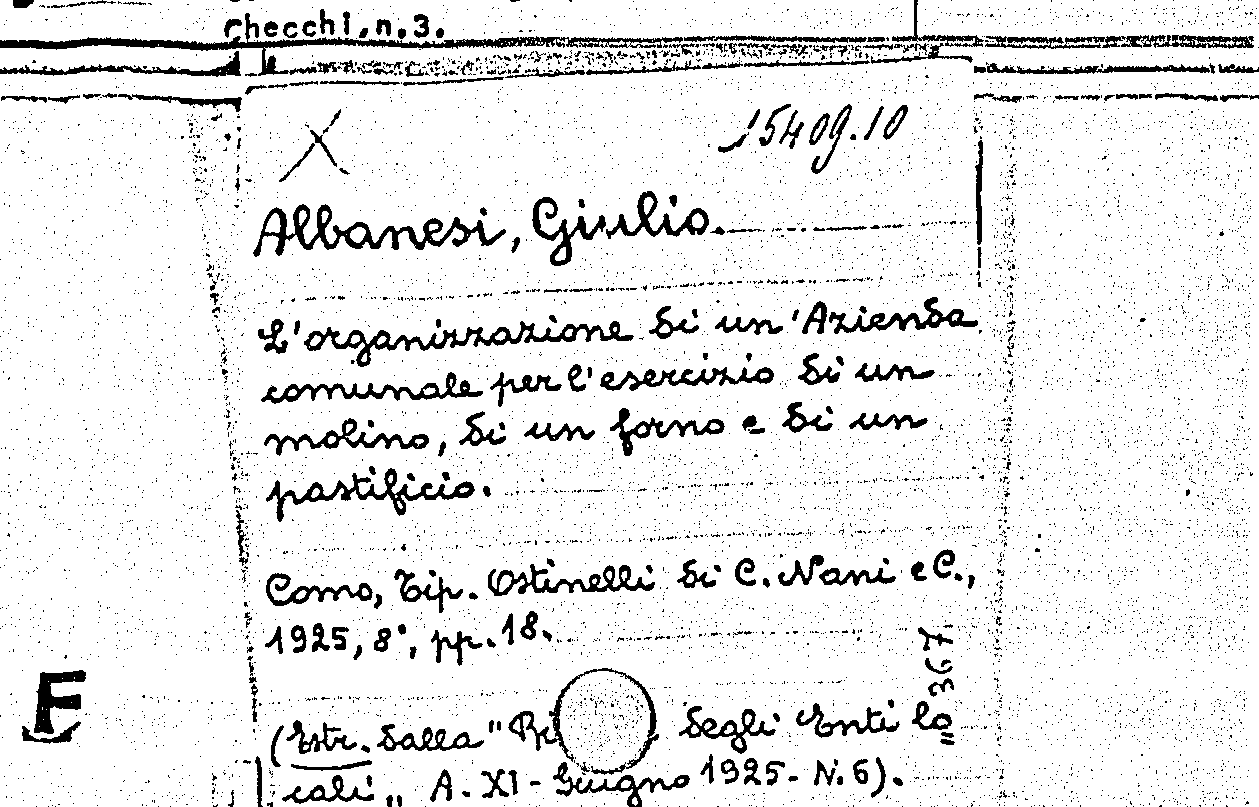 Checchi, n.3.
X
15409.10
Albanesi, Giulio.
L'organizzazione di un'Azienda
comunale per l'esercizio di un
molino, di un forno e di un
pastificio.
Como, Tip. Ostinelli di C. Nani e C.,
1925, 8°, pp. 18.
367
F
(Estr. dalla "Ri degli Enti lo=
cali„ A. XI - Giugno 1925 - N. 6).